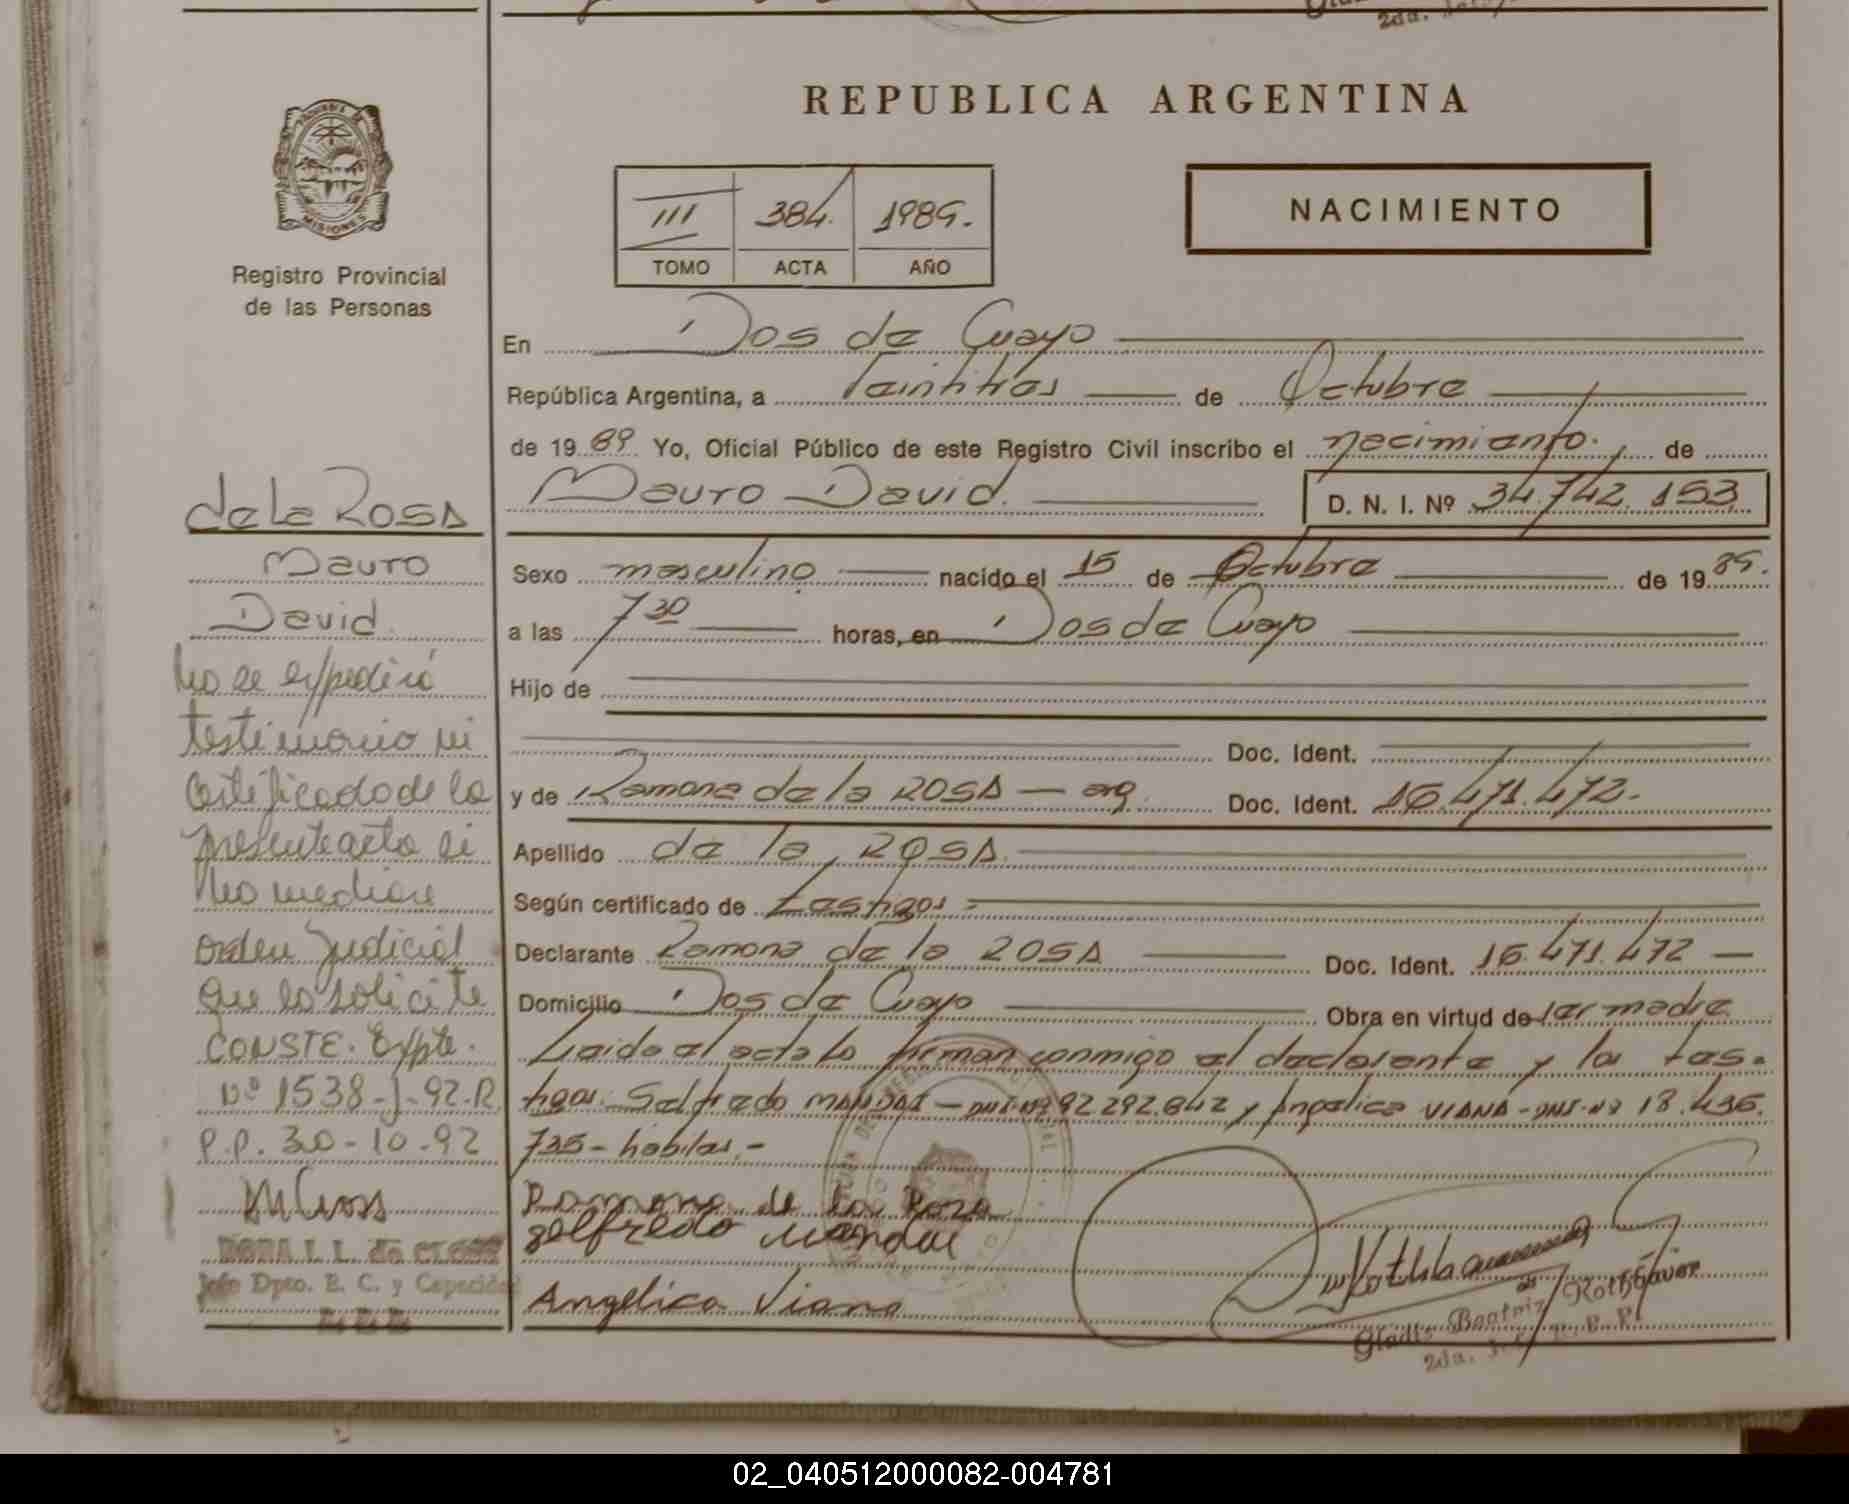 REPUBLICA ARGENTINA
MISIONES
Registro Provincial
de las Personas
III 384. 1989.
TOMO ACTA AÑO
NACIMIENTO
En Dos de Mayo
República Argentina, a Veintitres de Octubre
de 19 89 Yo, Oficial Público de este Registro Civil inscribo el nacimiento. de
Mauro David. D. N. I. Nº 34.742.153.
Sexo masculino nacido el 15 de Octubre de 19 89.
a las 7 30 horas, en Dos de Mayo
Hijo de
Doc. Ident.
y de Ramona de la ROSA — arg. Doc. Ident. 16.471.472.
Apellido de la ROSA
Según certificado de Testigos
Declarante Ramona de la ROSA Doc. Ident. 16.471.472 —
Domicilio Dos de Mayo Obra en virtud de ser madre
Leida el acta la firman conmigo el declarante y los tes-
tigos. Selfredo - DNI-Nº 92.292.842 y Angelica VIANA - DNI-Nº 18.436.
735 - habiles.-
Ramona de la Roza
selfredo
Angelica Viana
Gladis Beatriz
2da.
de la ROSA
Mauro
David.
No se expedirá
testimonio ni
certificado de la
presente acta si
no mediare
orden judicial
que lo solicite
CONSTE. Expte.
Nº 1538-J-92-R.
P.P. 30-10-92
Jefe Dpto. E. C. y Capacidad
02_040512000082-004781